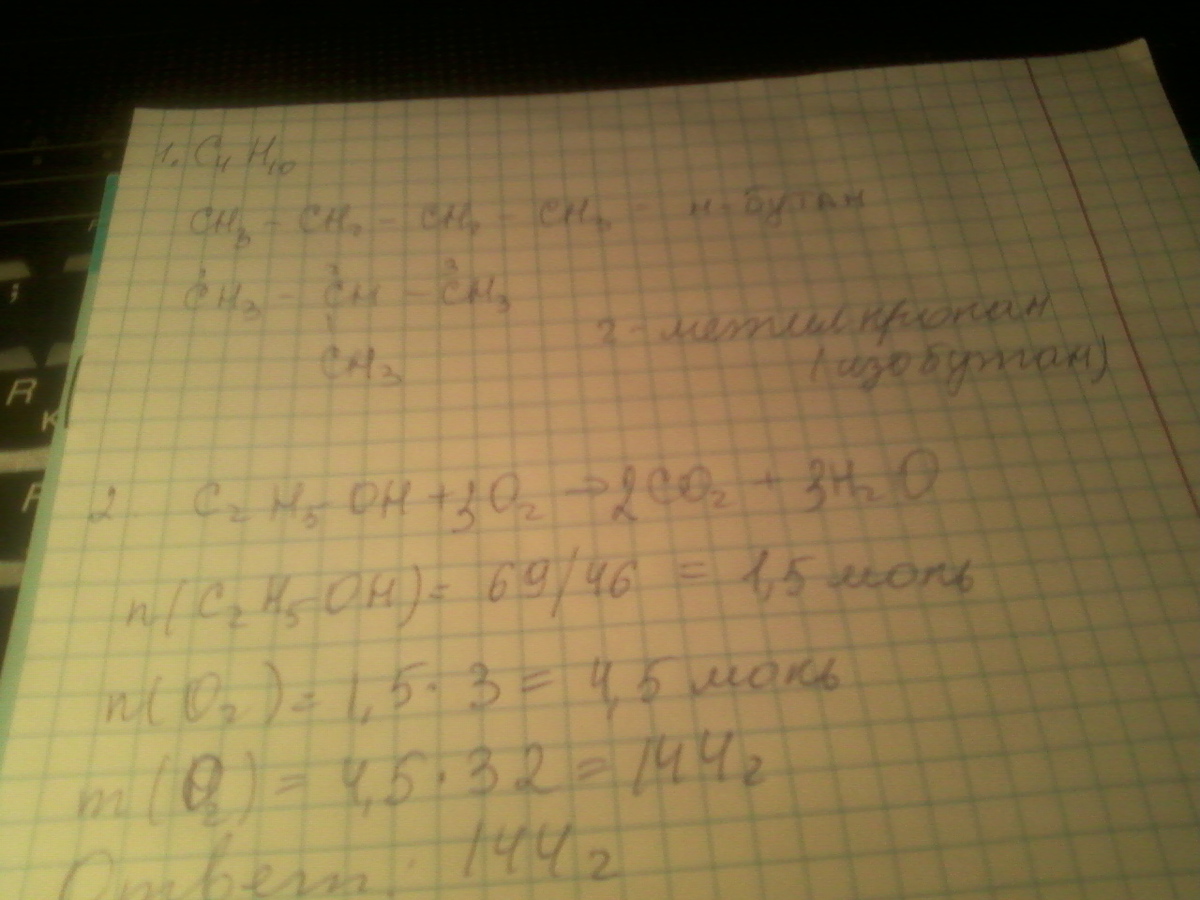 1. C₄H₁₀
CH₃ - CH₂ - CH₂ - CH₃ - н-бутан
1 2 3
CH₃ - CH - CH₃
2-метилпропан
CH₃
(изобутан)
2. C₂H₅OH + 3O₂ → 2CO₂ + 3H₂O
n(C₂H₅OH) = 69/46 = 1,5 моль
n(O₂) = 1,5 · 3 = 4,5 моль
m(O₂) = 4,5 · 32 = 144г
Ответ: 144г